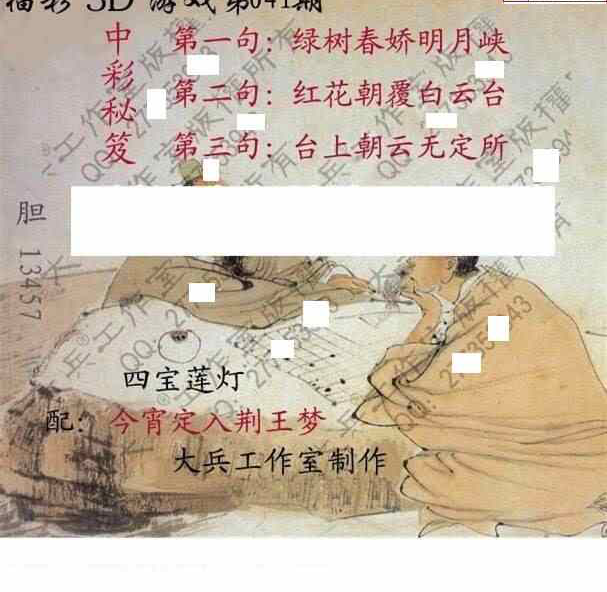 福彩 3D 游戏 第041期
中彩秘笈
第一句：绿树春娇明月峡
第二句：红花朝覆白云台
第三句：台上朝云无定所
胆 13457
四宝莲灯
配：今宵定入荆王梦
大兵工作室制作